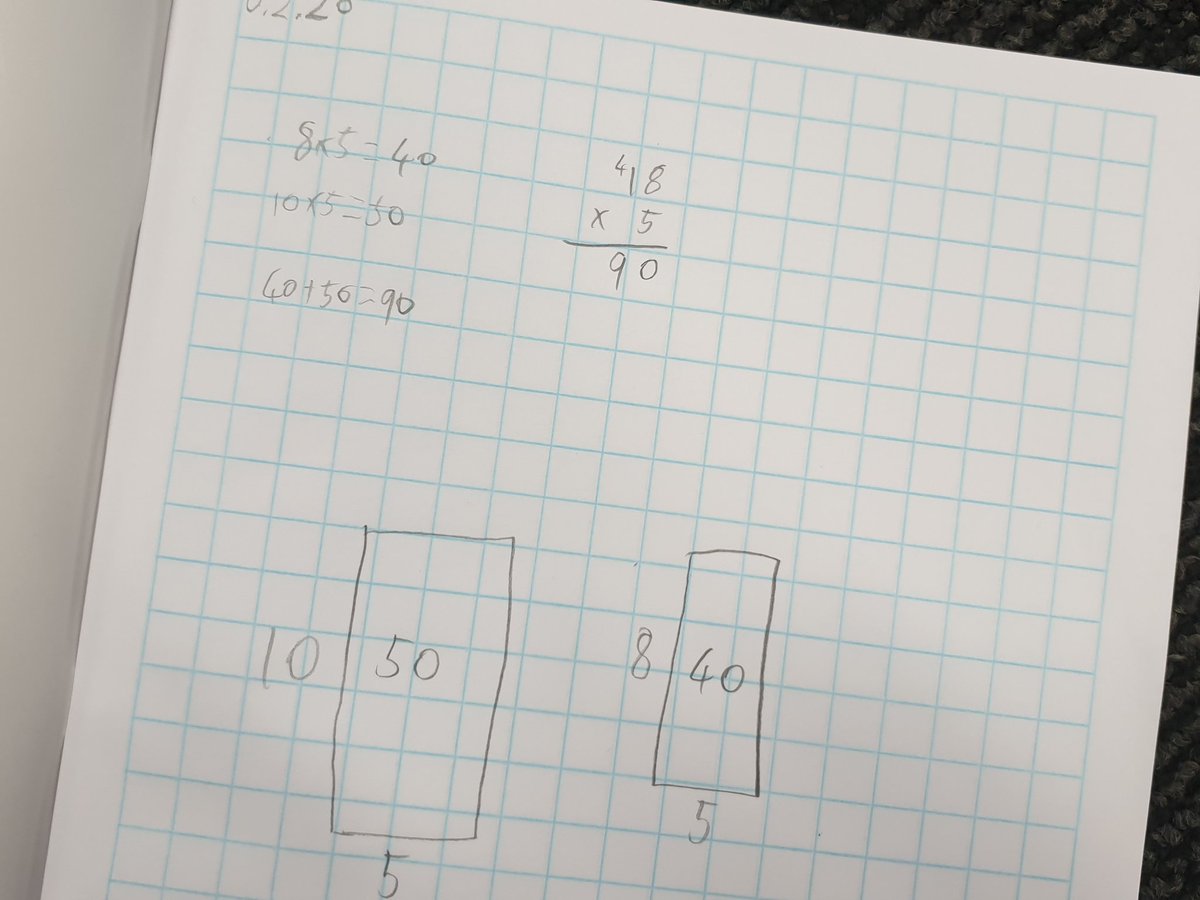 8x5=40
10x5=50
40+50=90
4 18
x 5
90
10 50
5
8 40
5